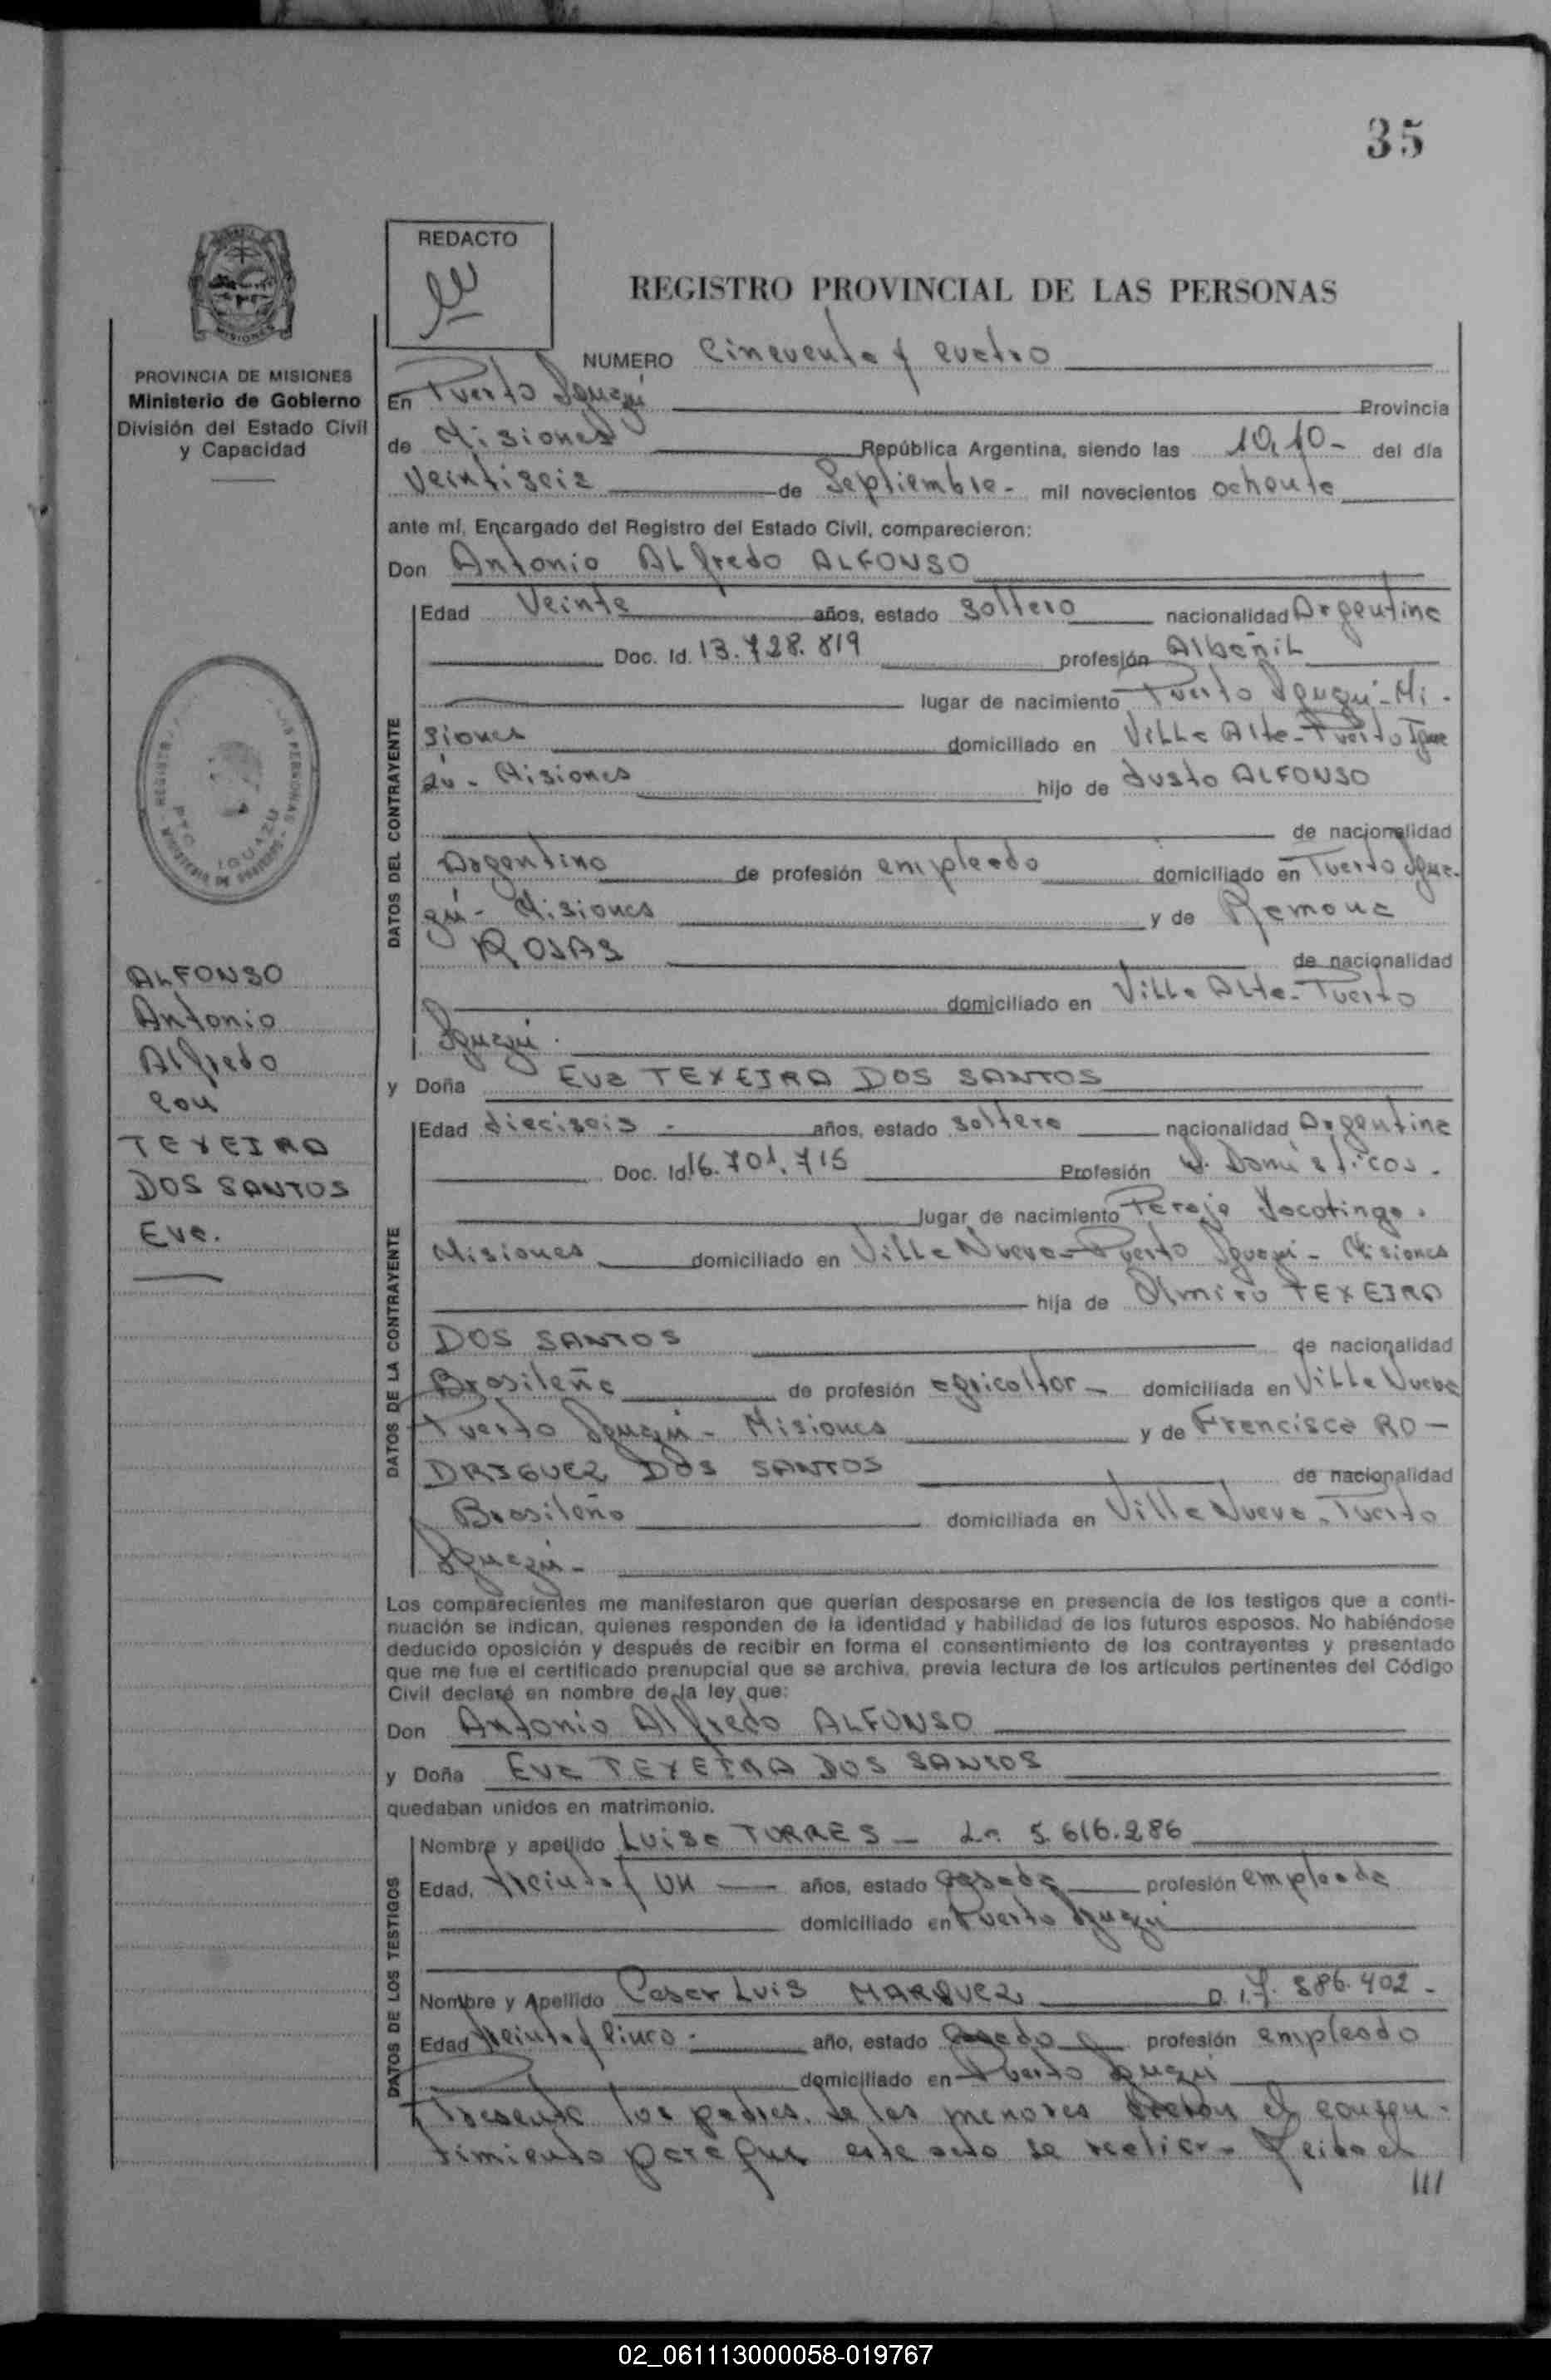 35
REDACTO
REGISTRO PROVINCIAL DE LAS PERSONAS
PROVINCIA DE MISIONES
Ministerio de Gobierno
División del Estado Civil
y Capacidad
NUMERO Cincuenta y cuatro
En Puerto Iguazú Provincia
de Misiones República Argentina, siendo las 10,10- del día
Veintiseis de Septiembre- mil novecientos ochenta
ante mí, Encargado del Registro del Estado Civil, comparecieron:
Don Antonio ALfredo ALFONSO
DATOS DEL CONTRAYENTE
Edad Veinte años, estado soltero nacionalidad Argentina
Doc. Id. 13.728.819 profesión Albañil
lugar de nacimiento Puerto Iguazú-Mi-
siones domiciliado en Villa Alta-Puerto Igua
zú- Misiones hijo de Justo ALFONSO
de nacionalidad
Argentino de profesión empleado domiciliado en Puerto Igua-
zú- Misiones y de Ramona
ROJAS de nacionalidad
domiciliado en Villa Alta-Puerto
Iguazú.
ALFONSO
Antonio
Alfredo
con
TEXEIRA
DOS SANTOS
Eva.
y Doña Eva TEXEIRA DOS SANTOS
DATOS DE LA CONTRAYENTE
Edad dieciseis - años, estado soltera nacionalidad Argentina
Doc. Id. 16.701.715 Profesión Q. Domésticos.
lugar de nacimiento Paraje
Misiones domiciliado en Villa Nueva-Puerto Iguazú- Misiones
hija de Almiro TEXEIRA
DOS SANTOS de nacionalidad
Brasileña de profesión agricoltor- domiciliada en Villa Nueva
Puerto Iguazú- Misiones y de Francisca RO-
DRIGUEZ DOS SANTOS de nacionalidad
Brasileña domiciliada en Villa Nueva-Puerto
Iguazú-
Los comparecientes me manifestaron que querían desposarse en presencia de los testigos que a conti-
nuación se indican, quienes responden de la identidad y habilidad de los futuros esposos. No habiéndose
deducido oposición y después de recibir en forma el consentimiento de los contrayentes y presentado
que me fue el certificado prenupcial que se archiva, previa lectura de los artículos pertinentes del Código
Civil declaré en nombre de la ley que:
Don Antonio Alfredo ALFONSO
y Doña Eva TEXEIRA DOS SANTOS
quedaban unidos en matrimonio.
DATOS DE LOS TESTIGOS
Nombre y apellido Luisa TORRES - 5.616.286
Edad, treinta y un años, estado casada profesión empleada
domiciliado en Puerto Iguazú
Nombre y Apellido Cesar Luis MARQUEZ D.I. 7.586.402-
Edad treinta y cinco- año, estado casado profesión empleado
domiciliado en Puerto Iguazú
Presente los padres de los menores el consen-
timiento para que este acto se realice- Leida el
///
02_061113000058-019767